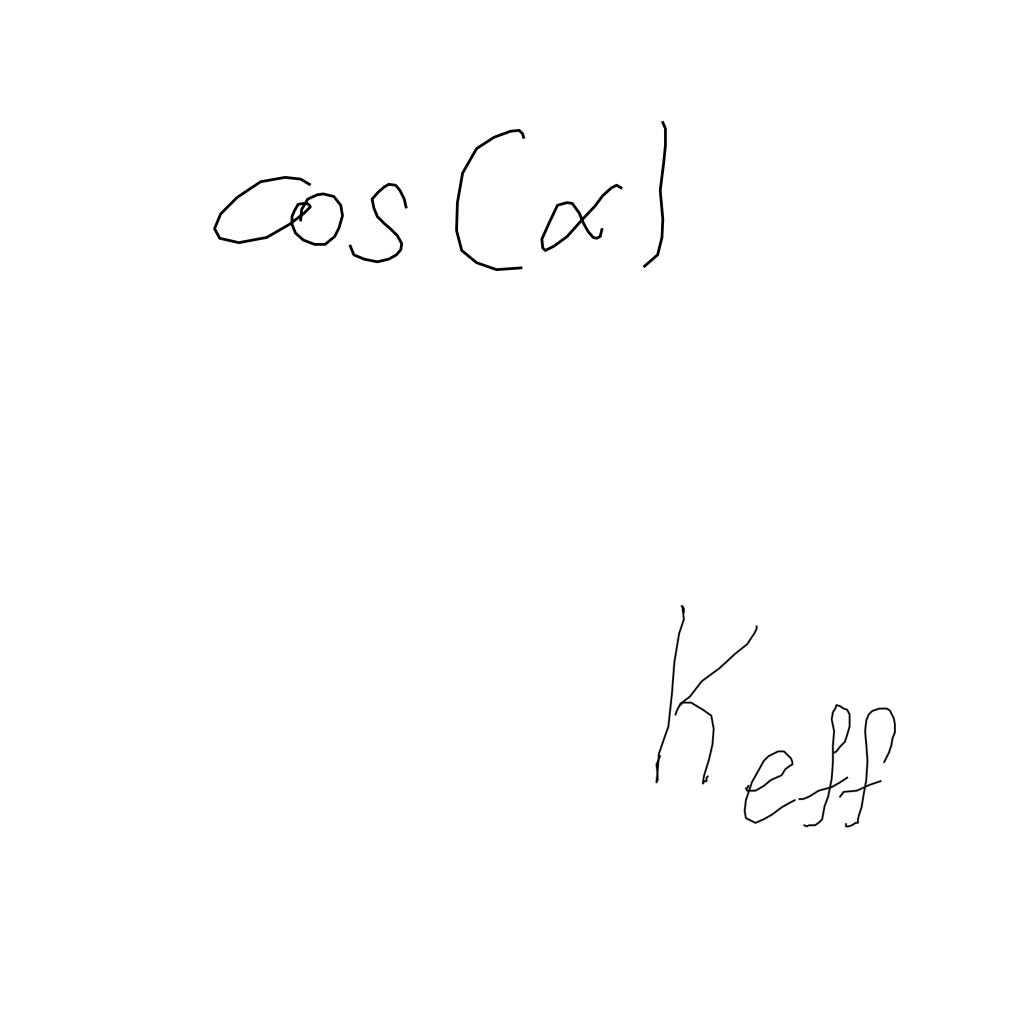 cos(α)
K_eff